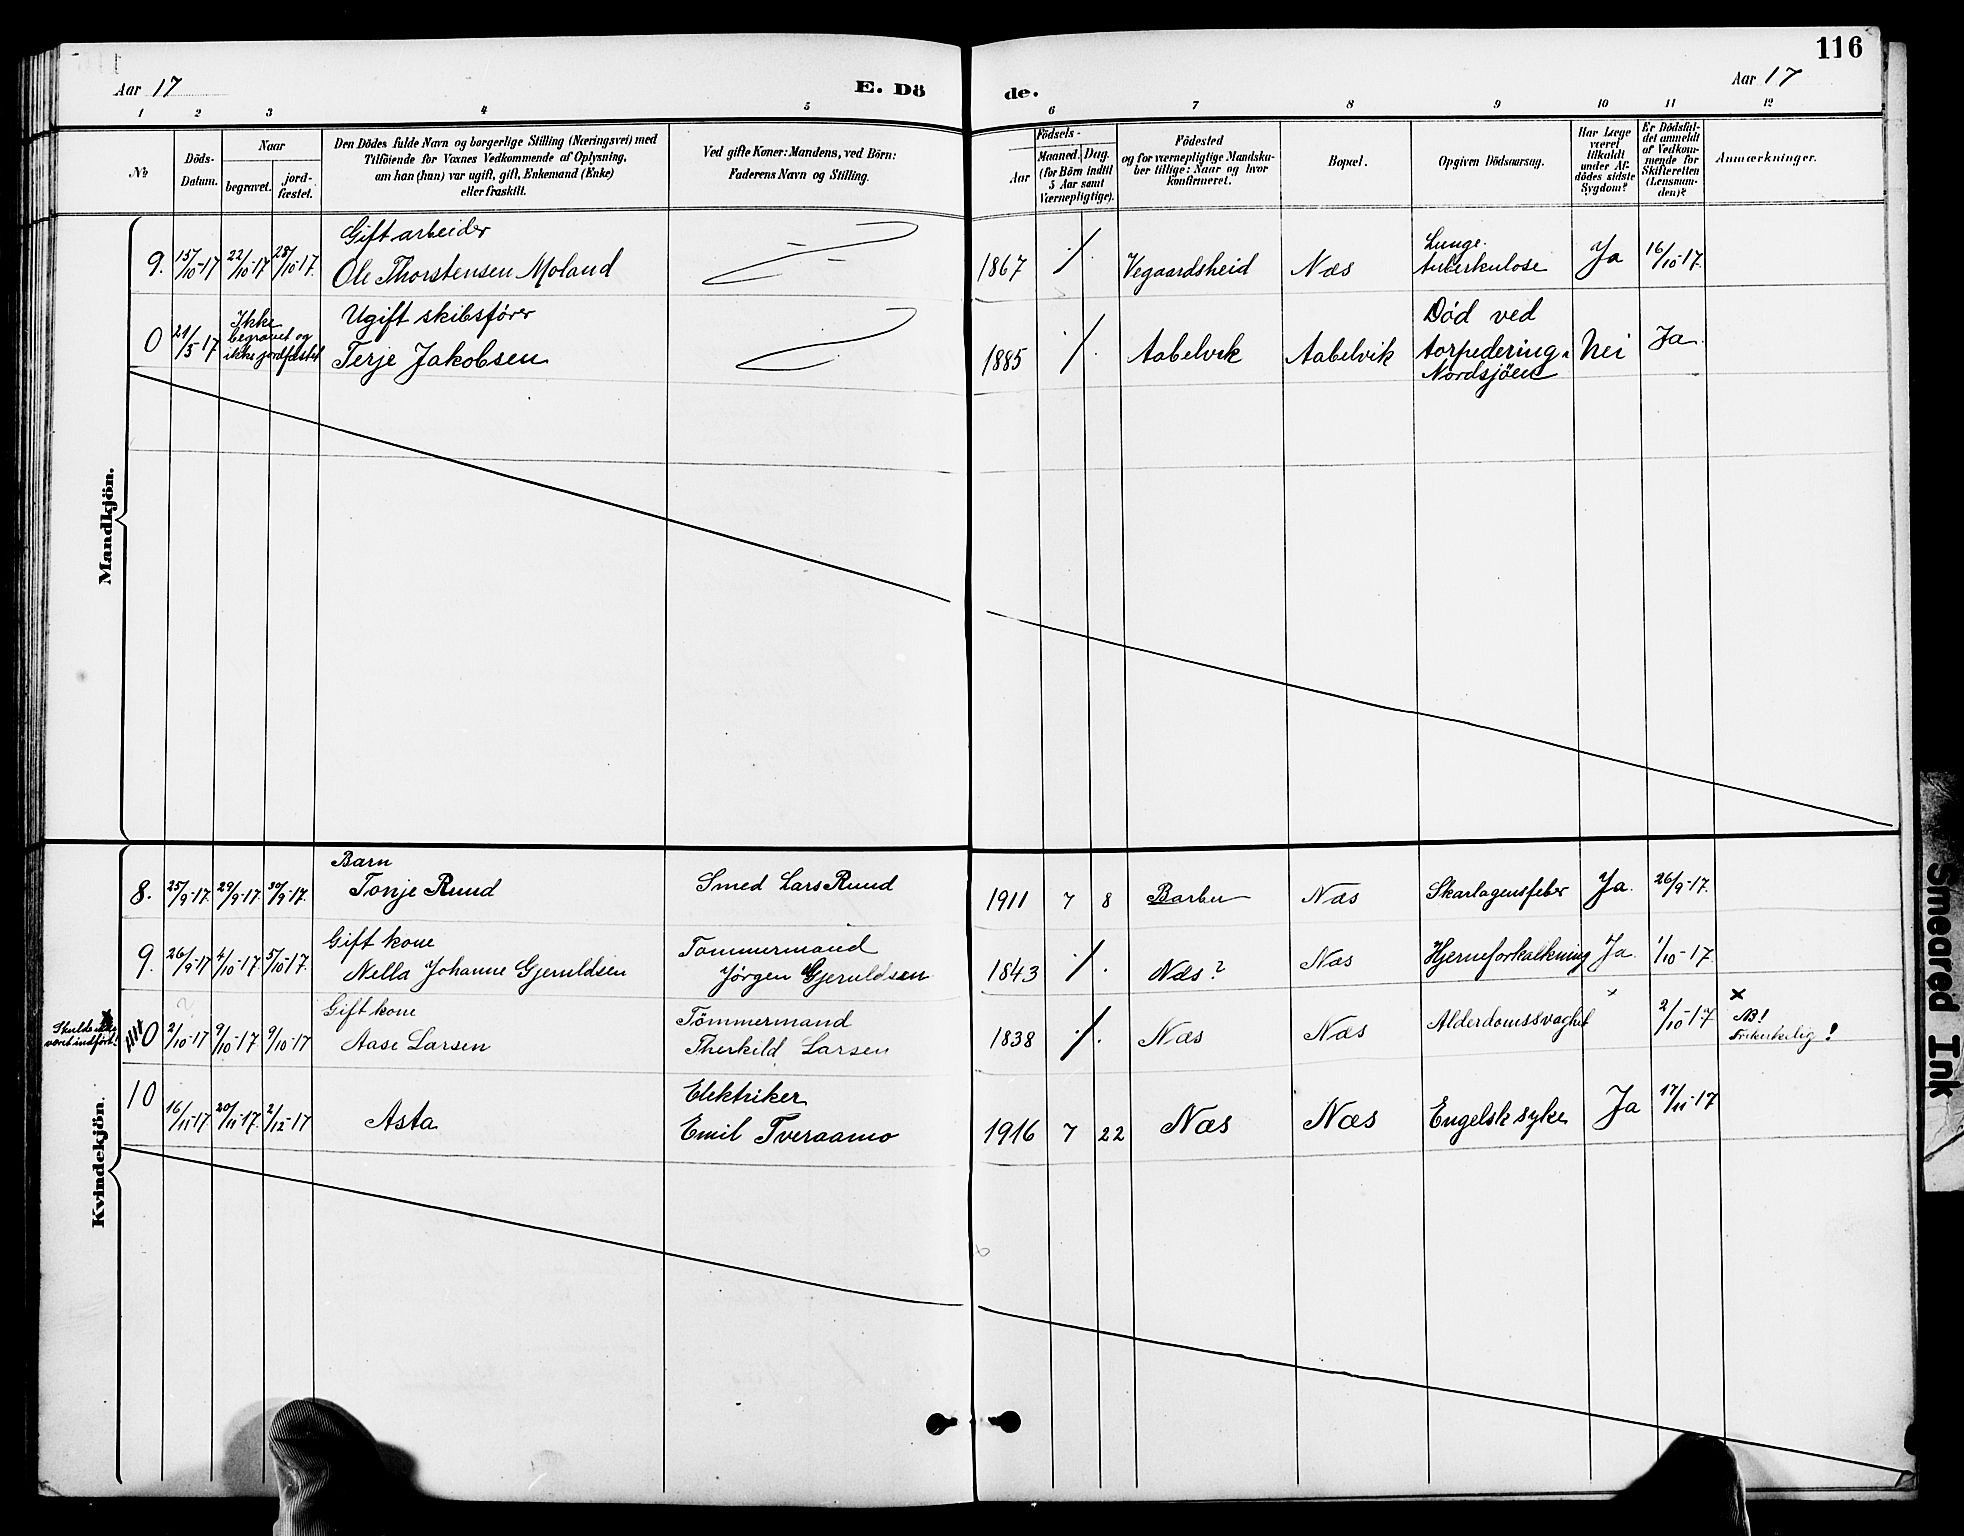 116
Aar 17
E. Dö
de.
Aar 17
1 2 3 4 5 6 7 8 9 10 11 12
No
Döds-
Datum.
Naar
begravet.
jord-
fæstet.
Den Dödes fulde Navn og borgerlige Stilling (Næringsvei) med
Tilföiende for Voxnes Vedkommende af Oplysning,
om han (hun) var ugift, gift, Enkemand (Enke)
eller fraskilt.
Ved gifte Koner: Mandens, ved Börn:
Faderens Navn og Stilling.
Födsels-
Aar
Maaned. Dag.
(for Börn indtil
5 Aar samt
Værnepligtige).
Födested
og for værnepligtige Mandska-
ber tillige: Naar og hvor
konfirmeret.
Bopæl.
Opgiven Dödsaarsag.
Har Læge
været
tilkaldt
under Af-
dödes sidste
Sygdom?
Er Dödsfal-
det anmeldt
af Vedkom-
mende for
Skifteretten
(Lensman-
den)?
Anmærkninger.
Mandkjön.
9. 15/10-17 22/10-17 28/10-17. Gift arbeider
Ole Thorstensen Moland
1867 ./. Vegaardsheid Næs Lunge-
tuberkulose Ja 16/10-17.
0 21/5-17 Ikke
begravet og
ikke jordfæstet
Ugift skibsförer
Terje Jakobsen
1885 ./. Aabelvik Aabelvik Död ved
torpedering i
Nordsjöen Nei Ja.
Kvindekjön.
8. 25/9-17. 29/9-17. 30/9-17. Barn
Tonje Ruud Smed Lars Ruud
1911 7 8 Barbu Næs Skarlagensfeber Ja. 26/9-17.
9. 26/9-17 4/10-17 5/10-17. Gift kone
Nella Johanne Gjeruldsen
Tømmermand
Jørgen Gjeruldsen
1843 ./. Næs? Næs Hjerneforkalkning Ja. 1/10-17.
Skulde ikke
været indført!
0 2/10-17 9/10-17 9/10-17 Gift kone
Aase Larsen
Tömmermand
Therkild Larsen
1838 ./. Næs Næs Alderdomssvaghet x 2/10-17 x
NB!
Frikirkelig!
10 16/11-17 20/11-17. 2/12-17 Asta
Elektriker
Emil Tveraamo
1916 7 22 Næs Næs Engelsk syke Ja 17/11-17
Smeared Ink